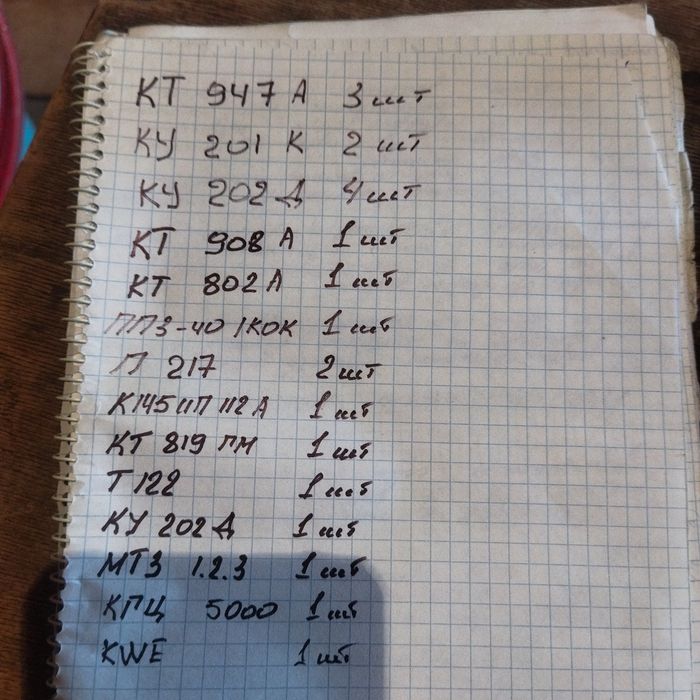 КТ 947 А 3 шт
КУ 201 К 2 шт
КУ 202 Д 4 шт
КТ 908 А 1 шт
КТ 802 А 1 шт
ПП3-40 1К0К 1 шт
П 217 2 шт
К145ИП 112 А 1 шт
КТ 819 ГМ 1 шт
Т 122 1 шт
КУ 202 Д 1 шт
МТЗ 1.2.3 1 шт
КГЦ 5000 1 шт
KWE 1 шт